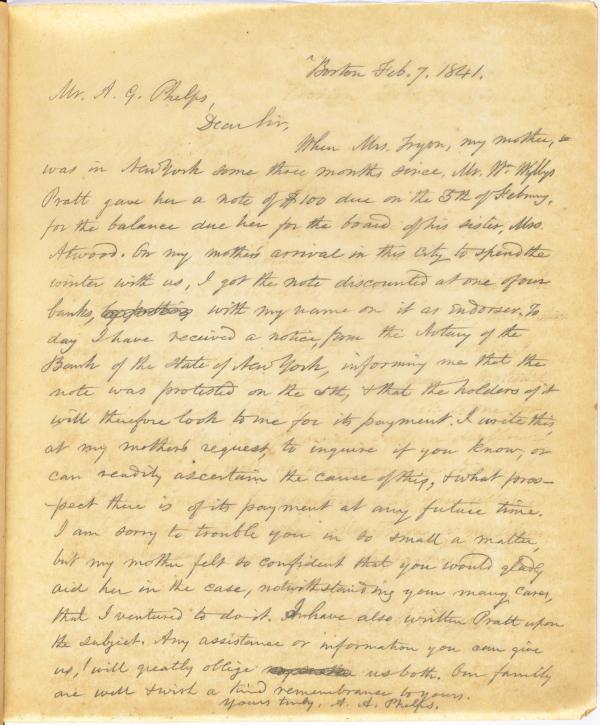 Boston Feb. 7. 1841.
Mr. A. G. Phelps,
Dear Sir,
When Mrs. Tryon, my mother,
was in New York some three months since, Mr. Wm Wyllys
Pratt gave her a note of $100 due on the 5th of February,
for the balance due her for the board of his sister, Mrs.
Atwood. On my mother's arrival in this city to spend the
winter with us, I got the note discounted at one of our
banks, with my name on it as endorser. To
day I have received a notice, from the Notary of the
Bank of the State of New York, informing me that the
note was protested on the 5th, & that the holders of it
will therefore look to me for its payment. I write this,
at my mother's request, to inquire if you know, or
can readily ascertain the cause of this, & what pros-
pect there is of its payment at any future time.
I am sorry to trouble you in so small a matter,
but my mother felt so confident that you would gladly
aid her in the case, notwithstanding your many cares,
that I ventured to do it. I have also written Pratt upon
the subject. Any assistance or information you can give
us, will greatly oblige us both. Our family
are well & wish a kind remembrance to yours.
Yours truly, A. A. Phelps.